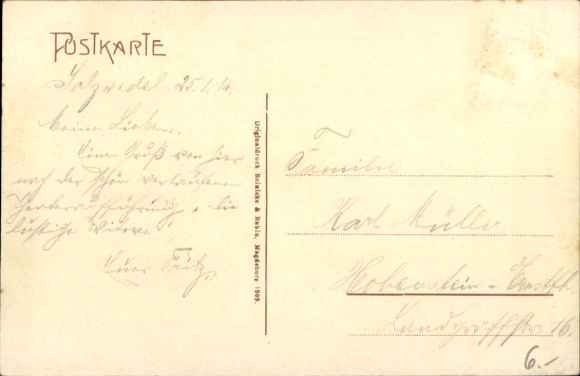 POSTKARTE
Salzwedel 25.1.14.
Meine Lieben,
Einen Gruß von hier
nach der schön verlaufenen
"Die
lustige Witwe"
Euer Fritz
Originaldruck Reinicke & Rubin, Magdeburg 1909.
Familie
Karl Müller
Hohenstein-Ernstth.
16.
6.-